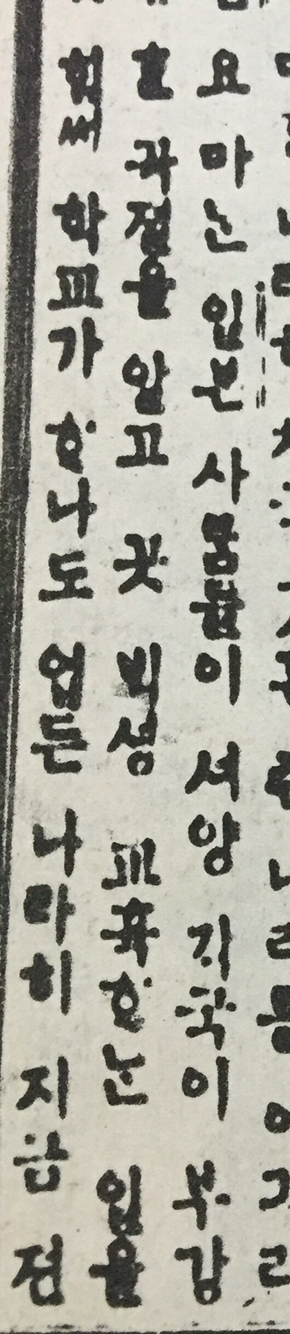 요 마ᄂᆞᆫ 일본 사ᄅᆞᆷ들이 셔양 각국이 부강
ᄒᆞᆫ 곡졀을 알고 곳 ᄇᆡᆨ셩 교휵ᄒᆞᄂᆞᆫ 일을
힘써 학교가 ᄒᆞ나도 업든 나라히 지금 젼